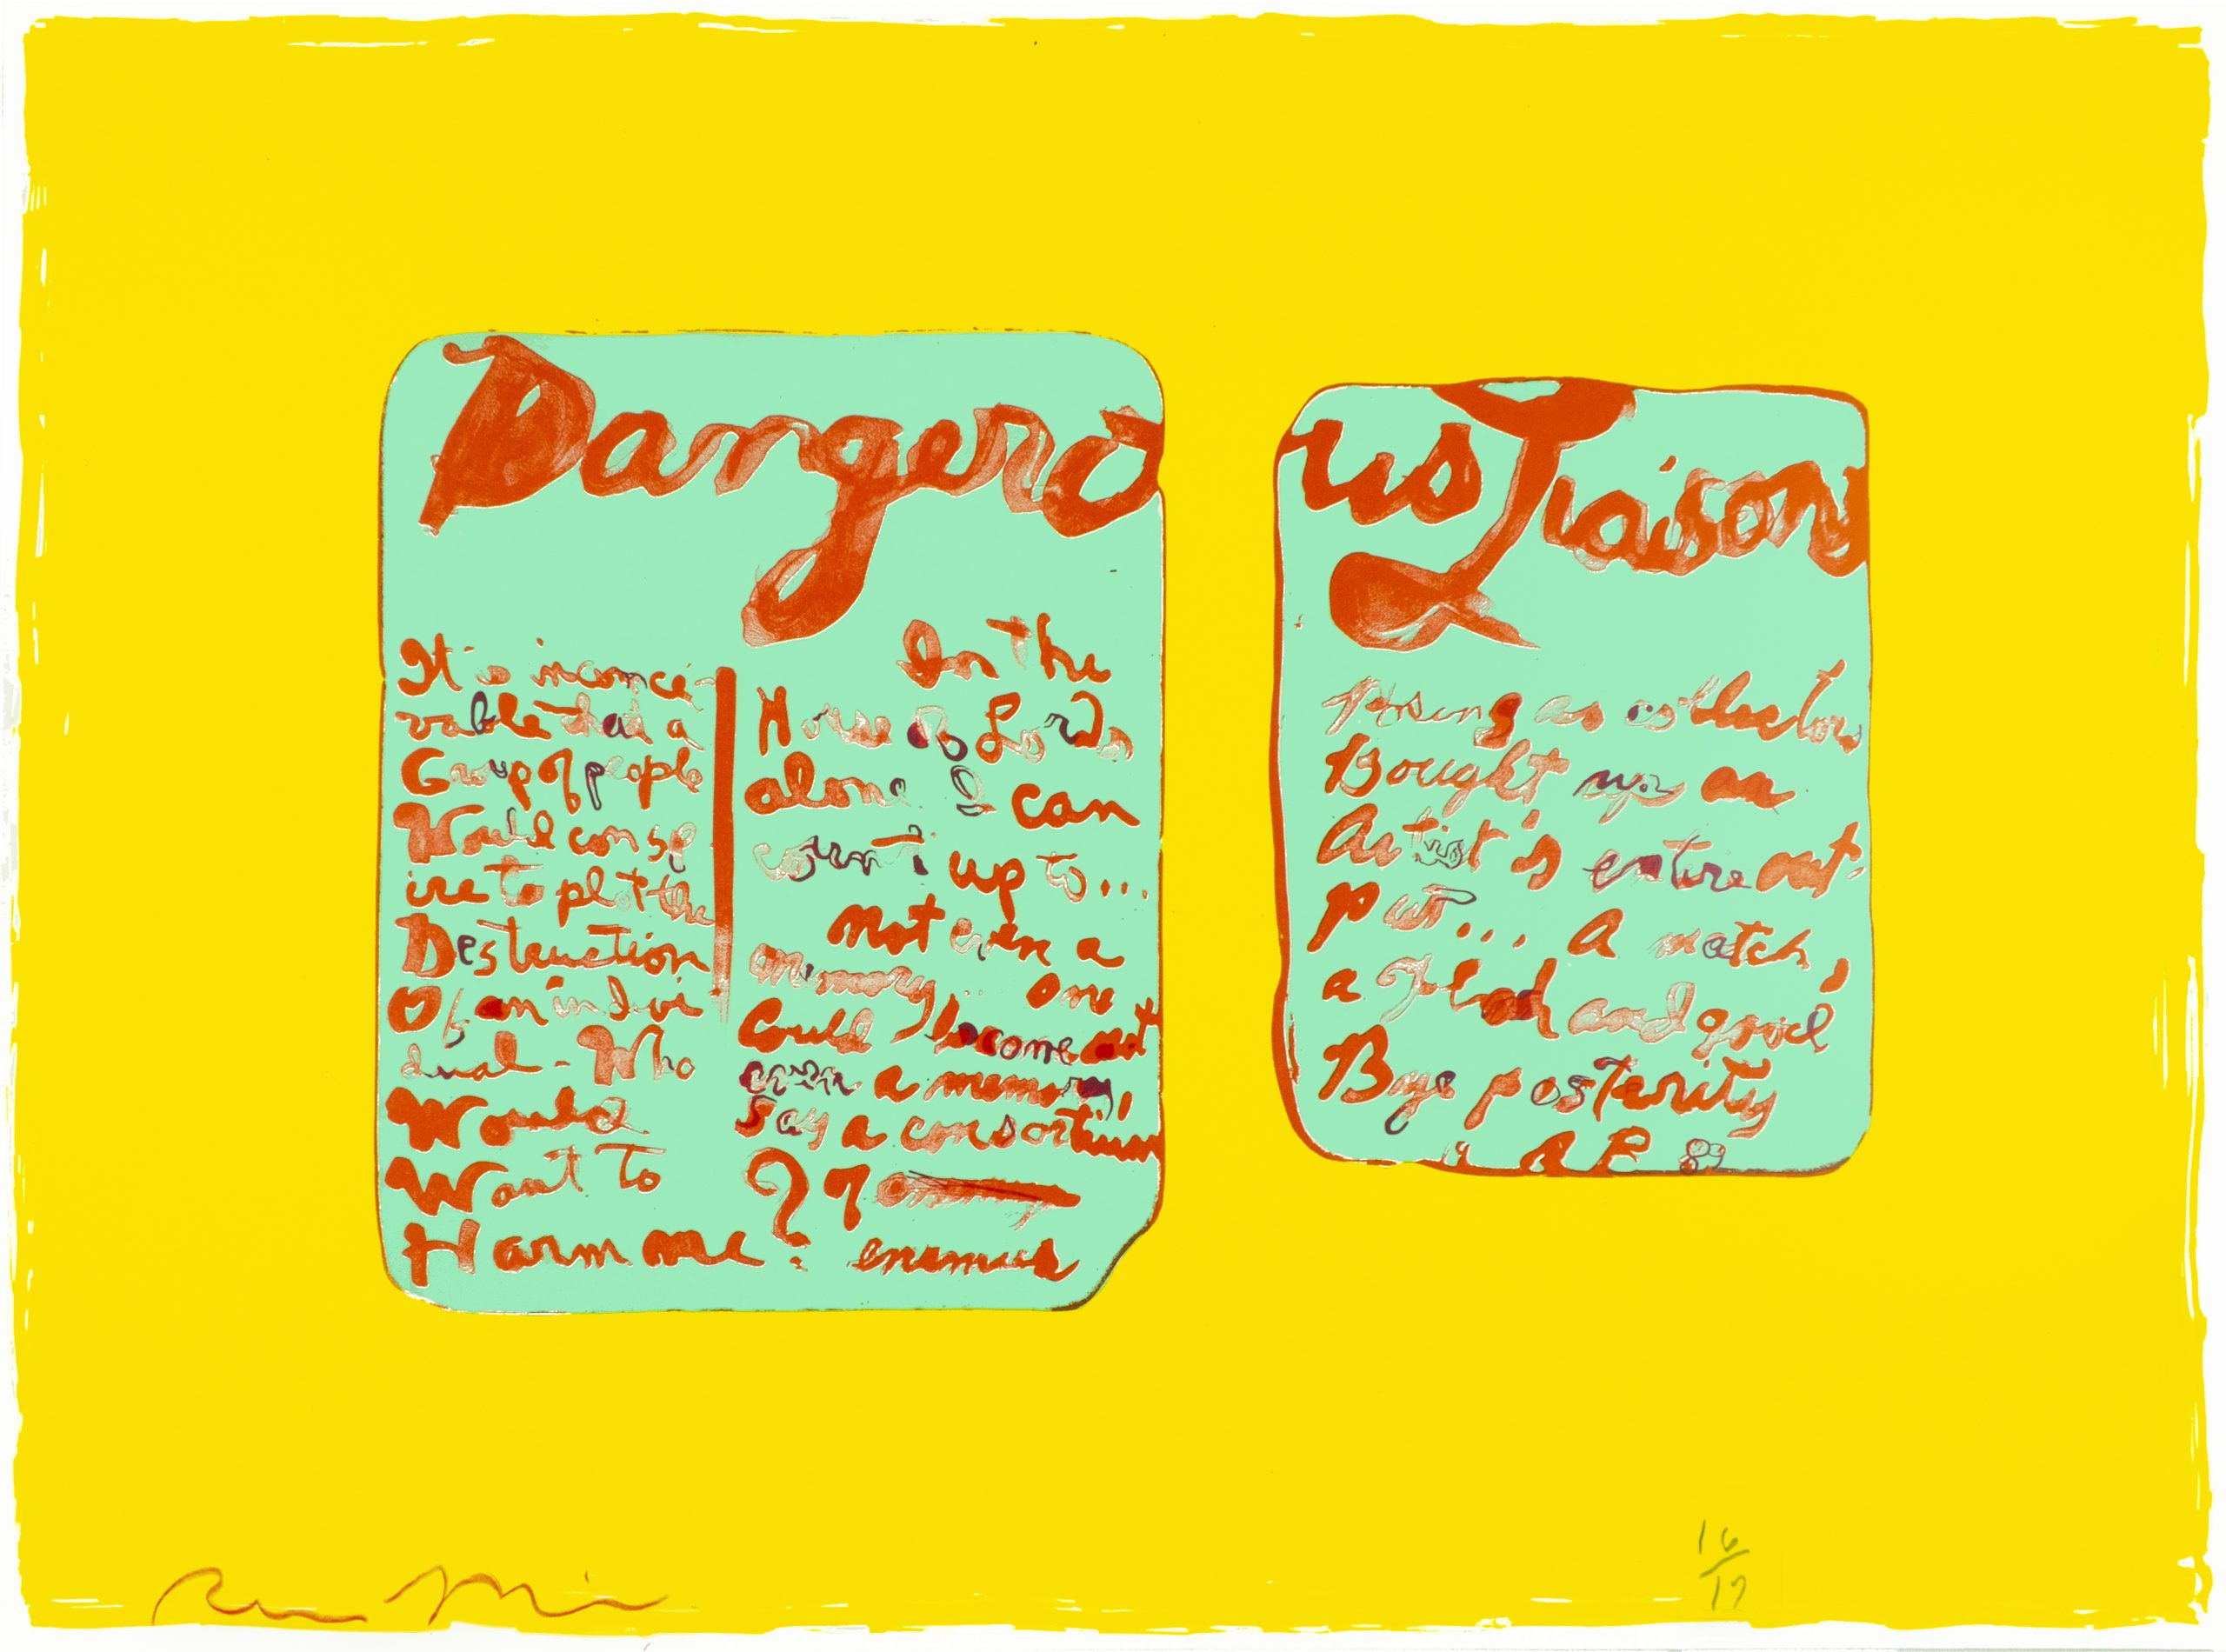 Dangero
It is inconcei-
vable that a
Group of people
Would consp
ire to plot the
Destruction
Of an indivi
dual - Who
Would
Want to
Harm me?
In the
House of Lords
alone I can
count up to...
not even a
memory... One
Could become not
even a memory,
Say a consortium
of
enemies
us Liaisons
Posing as collectors
Bought up an
Artist's entire out-
put... A match,
a splash and good
Bye posterity
AR 89
16
17